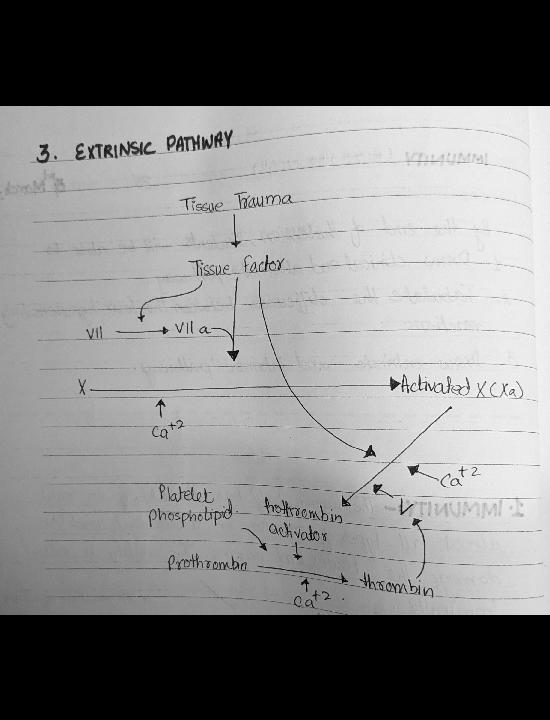 3. EXTRINSIC PATHWAY
Tissue Trauma
Tissue factor
VII
VII a
X
Activated X (Xa)
Ca+2
Ca+2
V
Platelet
phospholipid
Prothrombin
activator
Prothrombin
thrombin
Ca+2.
1. IMMUNITY-
IMMUNITY